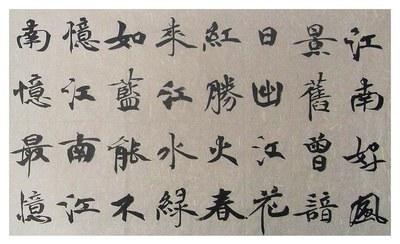 江南好風
景舊曾諳
日出江花
紅勝火春
來江水綠
如藍能不
憶江南江
南憶最憶